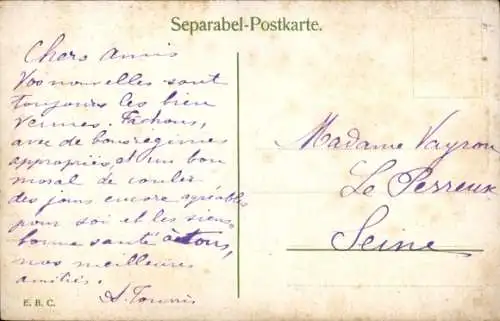 Separabel-Postkarte.
Chers amis
Vos nouvelles sont
toujours les bien
venues. Tâchons,
avec de bons régimes
appropriés, et un bon
moral de couler
des jours encore agréables
pour soi et les siens.
bonne santé à tous,
nos meilleures
amitiés.
Madame Vayron
Le Perreux
Seine
E. B. C.